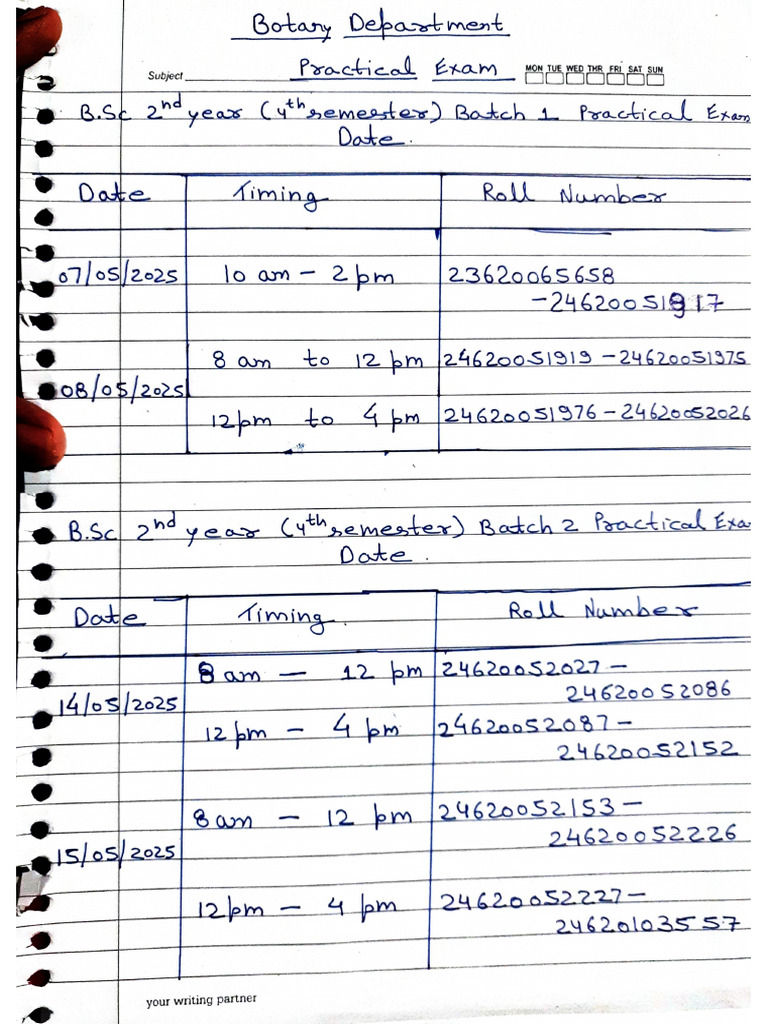 Botany Department
Subject Practical Exam MON TUE WED THR FRI SAT SUN
B.Sc 2nd year (4th semester) Batch 1 Practical Exam
Date.
Date Timing Roll Number
07/05/2025 10 am – 2 pm 23620065658
–24620051917
8 am to 12 pm 24620051919 – 24620051975
08/05/2025
12 pm to 4 pm 24620051976 – 24620052026
B.Sc 2nd year (4th semester) Batch 2 Practical Exa
Date.
Date Timing. Roll Number
8 am – 12 pm 24620052027 –
14/05/2025 24620052086
12 pm – 4 pm 24620052087 –
24620052152
8 am – 12 pm 24620052153 –
15/05/2025 24620052226
12 pm – 4 pm 24620052227 –
24620103557
your writing partner